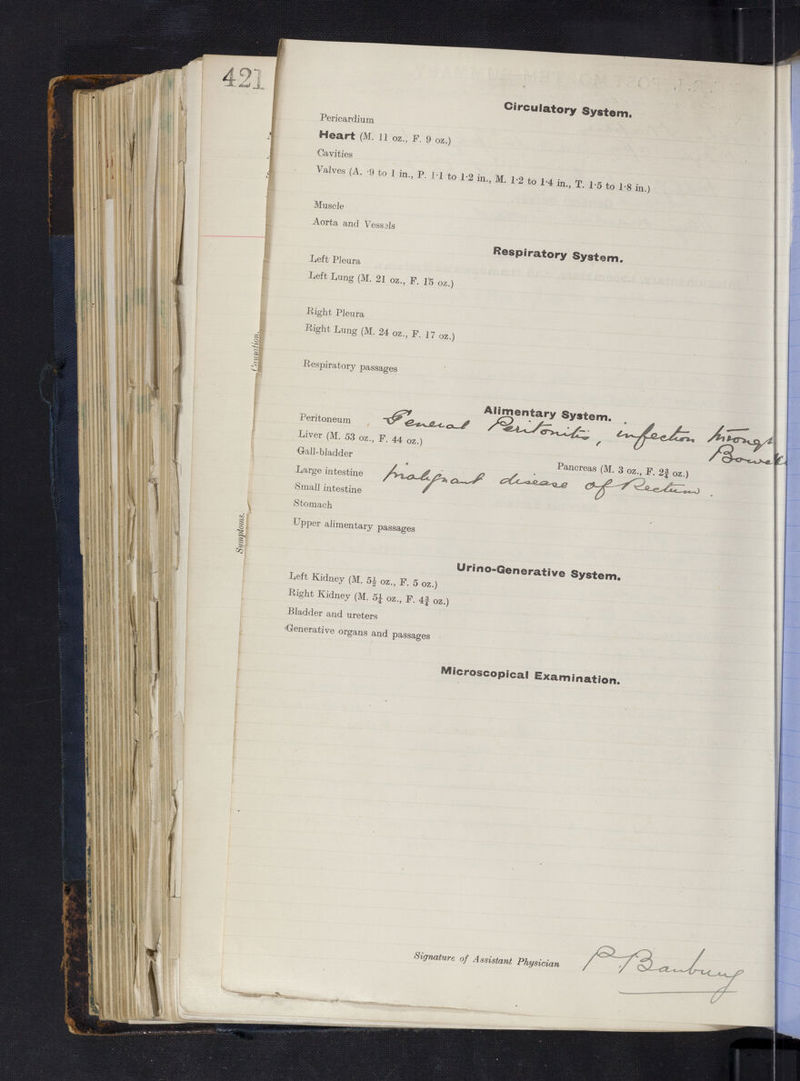 421
Circulatory System.
Pericardium
Heart (M. 11 oz., F. 9 oz.)
Cavities
Valves (A. ·9 to 1 in., P. 1·1 to 1·2 in., M. 1·2 to 1·4 in., T. 1·5 to 1·8 in.)
Muscle
Aorta and Vessels
Respiratory System.
Left Pleura
Left Lung (M. 21 oz., F. 15 oz.)
Right Pleura
Right Lung (M. 24 oz., F. 17 oz.)
Causation.
Respiratory passages
Alimentary System.
Peritoneum General Peritonitis, infection through
Liver (M. 53 oz., F. 44 oz.) Bowel
Gall-bladder Pancreas (M. 3 oz., F. 2¾ oz.)
Large intestine Malignant disease of Rectum.
Small intestine
Stomach
Symptoms.
Upper alimentary passages
Urino-Generative System.
Left Kidney (M. 5½ oz., F. 5 oz.)
Right Kidney (M. 5¼ oz., F. 4¾ oz.)
Bladder and ureters
Generative organs and passages
Microscopical Examination.
Signature of Assistant Physician P Banbury